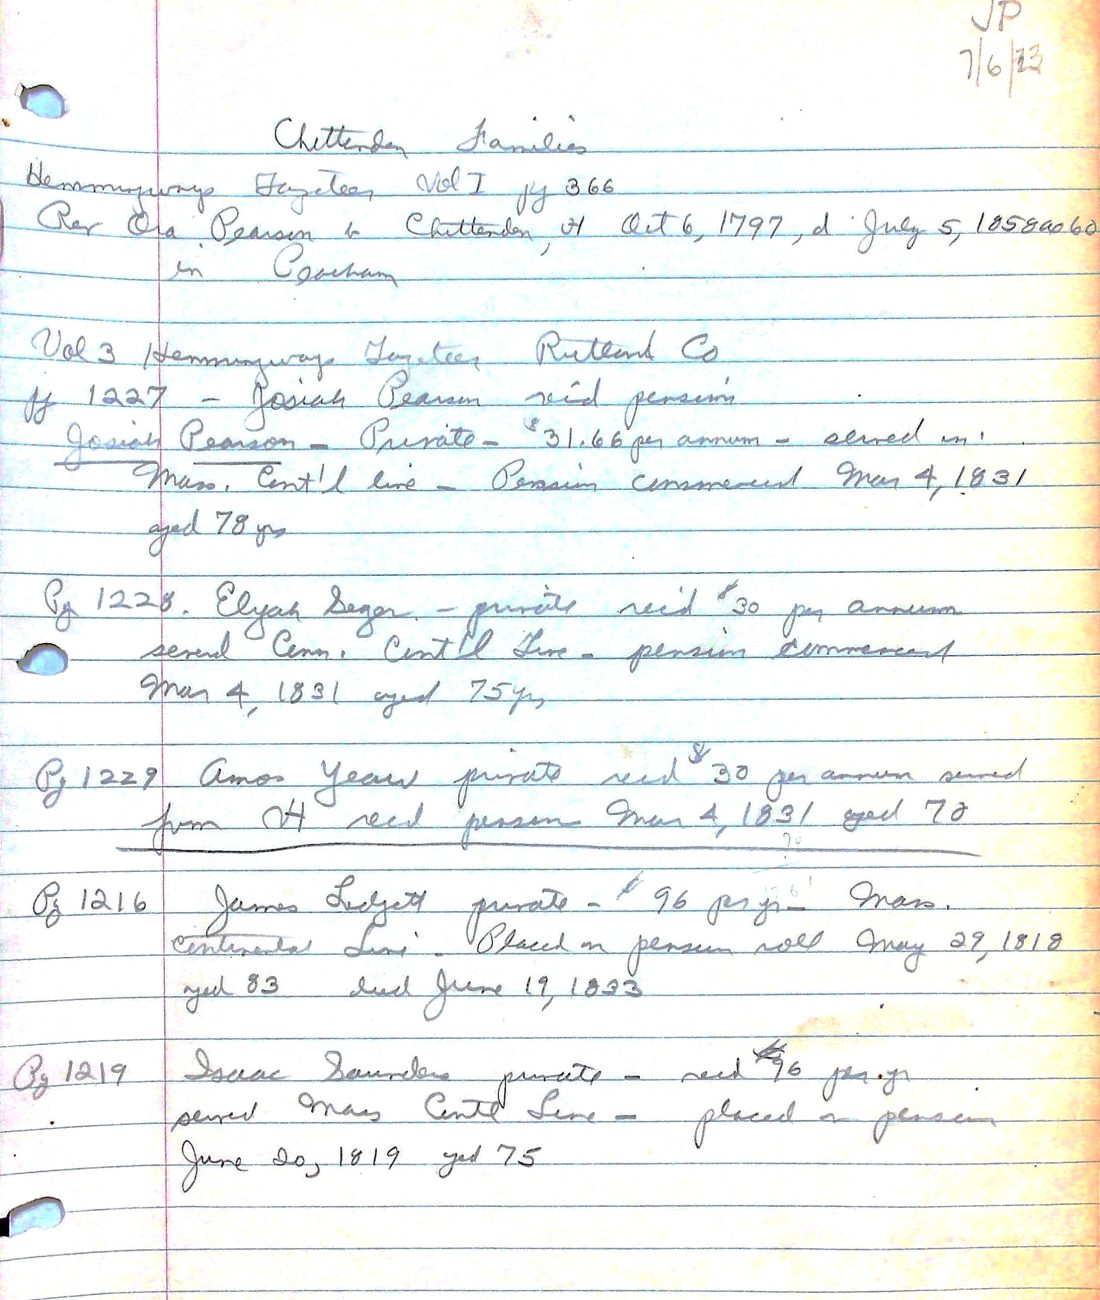 JP
7/6/23
Chittenden Families
Hemmingways Gazeteer Vol I pg 366
Rev Ora Pearson b Chittenden, Vt Oct 6, 1797, d July 5, 1858 ae 60
in Peacham
Vol 3 Hemmingways Gazeteer Rutland Co
pg 1227 - Josiah Pearson rec'd pension
Josiah Pearson - Private - $31.66 per annum - served in
Mass. Cont'l line - Pension commenced Mar 4, 1831
aged 78 yrs
Pg 1228. Elijah Seger - private rec'd $30 per annum
served Conn. Cont'l Line - pension commenced
Mar 4, 1831 aged 75 yrs
Pg 1229 Amos Yeaw private recd $30 per annum served
from Vt recd pension Mar 4, 1831 aged 70
Pg 1216 James Ledgett private - $96 per yr - Mass.
Continental Line - Placed on pension roll May 29, 1818
aged 83 died June 19, 1833
Pg 1219 Isaac Saunders private - recd $96 per yr
served Mass Contl Line - placed on pension
June 20, 1819 aged 75